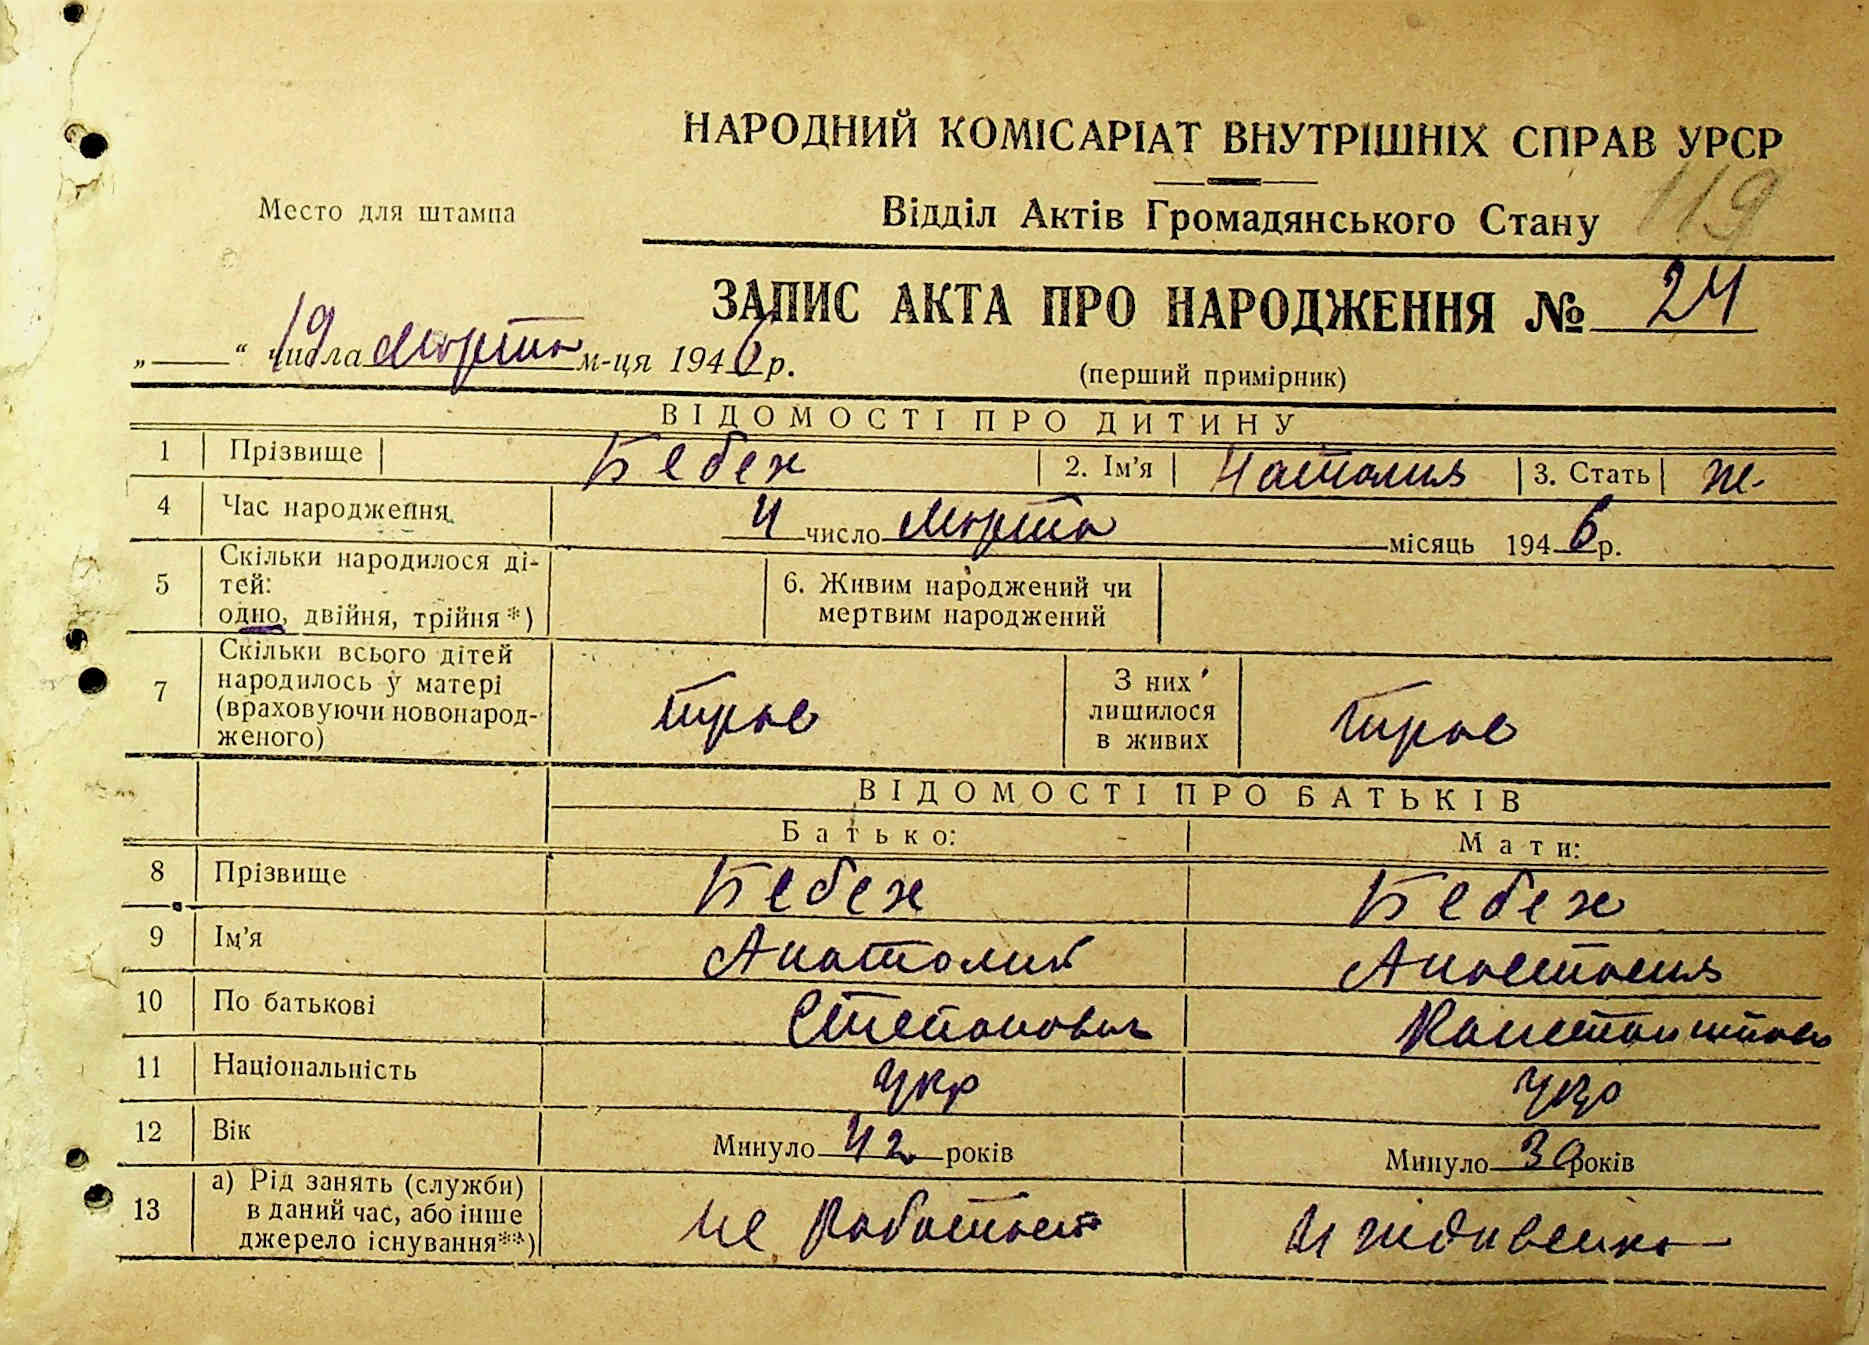 НАРОДНИЙ КОМІСАРІАТ ВНУТРІШНІХ СПРАВ УРСР
Место для штампа
Відділ Актів Громадянського Стану
119
ЗАПИС АКТА ПРО НАРОДЖЕННЯ № 24
„ “ 19 числа Марта м-ця 1946 р.
(перший примірник)
ВІДОМОСТІ ПРО ДИТИНУ
1 Прізвище Бебех 2. Ім'я Наталия 3. Стать ж.
4 Час народження 4 число Марта місяць 1946 р.
5 Скільки народилося ді-
тей:
одно, двійня, трійня*)
6. Живим народжений чи
мертвим народжений
7 Скільки всього дітей
народилось у матері
(враховуючи новонарод-
женого)
трое
З них
лишилося
в живих
трое
ВІДОМОСТІ ПРО БАТЬКІВ
Батько: Мати:
8 Прізвище Бебех Бебех
9 Ім'я Анатолий Анастасия
10 По батькові Степанович
11 Національність укр укр
12 Вік Минуло 42 років Минуло 30 років
13 а) Рід занять (служби)
в даний час, або інше
джерело існування**)
не работает иждивенка